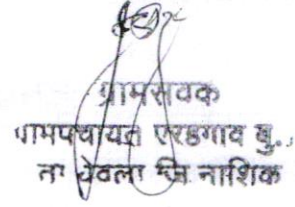 ग्रामसेवक
ग्रामपंचायत एरंडगाव बु.,
ता येवला जि नाशिक